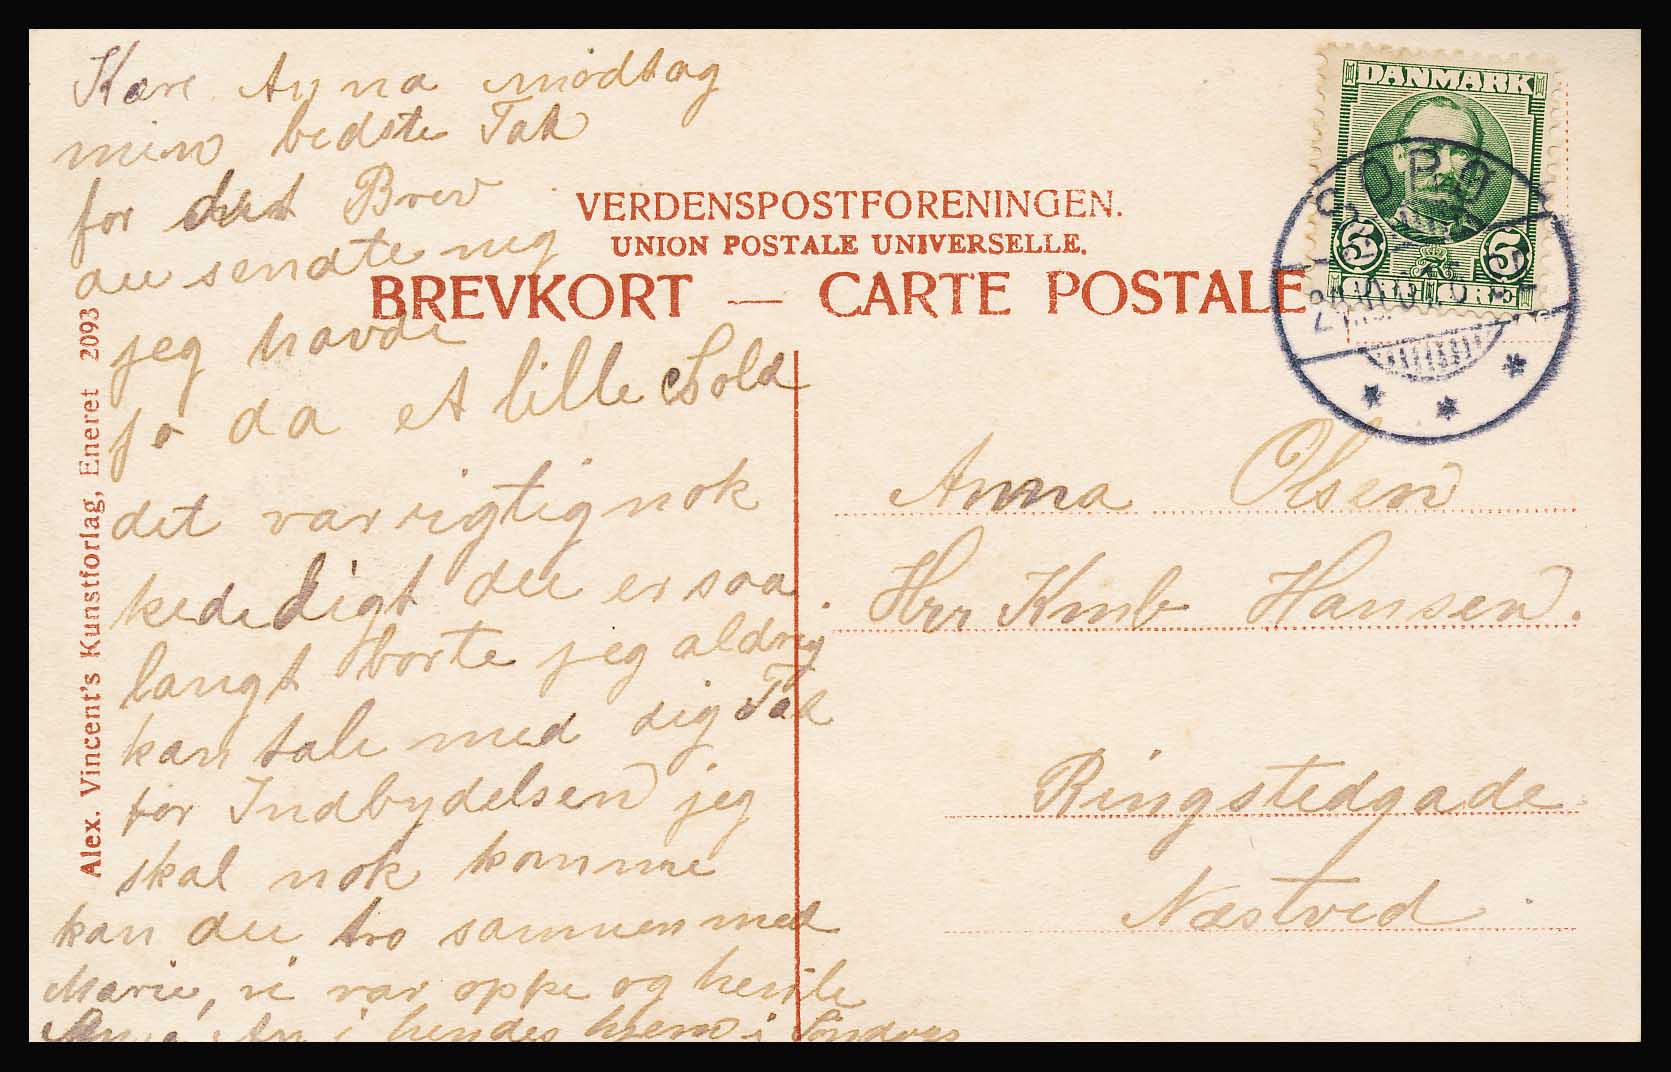 Kære Anna modtag
min bedste Tak
for det Brev
du sendte mig
jeg havde
jo da et lille Sold
det var rigtignok
kededigt du er saa
langt borte jeg aldrig
kan tale med dig Tak
for Indbydelsen jeg
skal nok komme
kan du tro sammen med
Marie, vi var oppe og hente
i hendes hjem i Søndags
VERDENSPOSTFORENINGEN.
UNION POSTALE UNIVERSELLE.
BREVKORT — CARTE POSTALE
DANMARK
5 5
SORØ
Anna Olsen
Hrr Kmb Hansen.
Ringstedgade
Næstved
Alex. Vincent's Kunstforlag, Eneret 2093